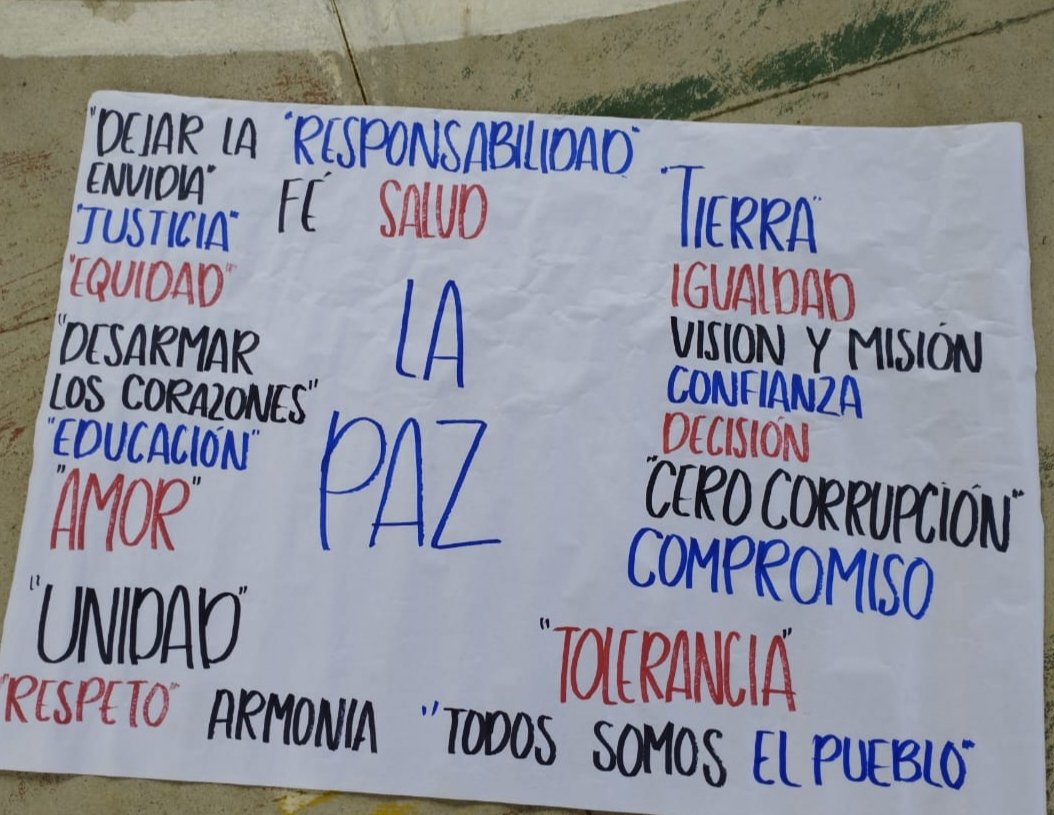 "DEJAR LA
ENVIDIA"
"JUSTICIA"
"EQUIDAD"
"DESARMAR
LOS CORAZONES"
"EDUCACIÓN"
"AMOR"
"UNIDAD"
"RESPETO" ARMONIA
"RESPONSABILIDAD"
FÉ SALUD
LA
PAZ
"TIERRA"
IGUALDAD
VISION Y MISIÓN
CONFIANZA
DECISIÓN
"CERO CORRUPCIÓN"
COMPROMISO
"TOLERANCIA"
"TODOS SOMOS EL PUEBLO"